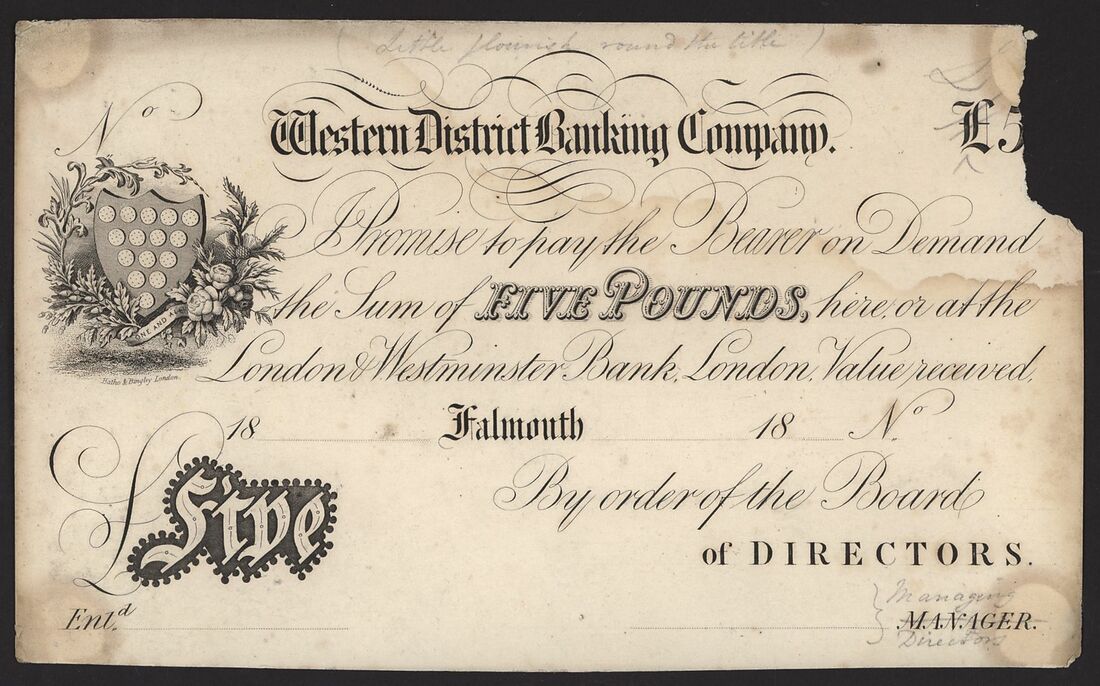 ( Little flourish round the title )
No
Western District Banking Company.
£5
I Promise to pay the Bearer on Demand
the Sum of FIVE POUNDS, here, or at the
London & Westminster Bank, London, Value received,
ONE AND A
Batho & Bingley London.
18 Falmouth 18 No
By order of the Board
£Five
of DIRECTORS.
Managing
Entd. MANAGER.
Directors